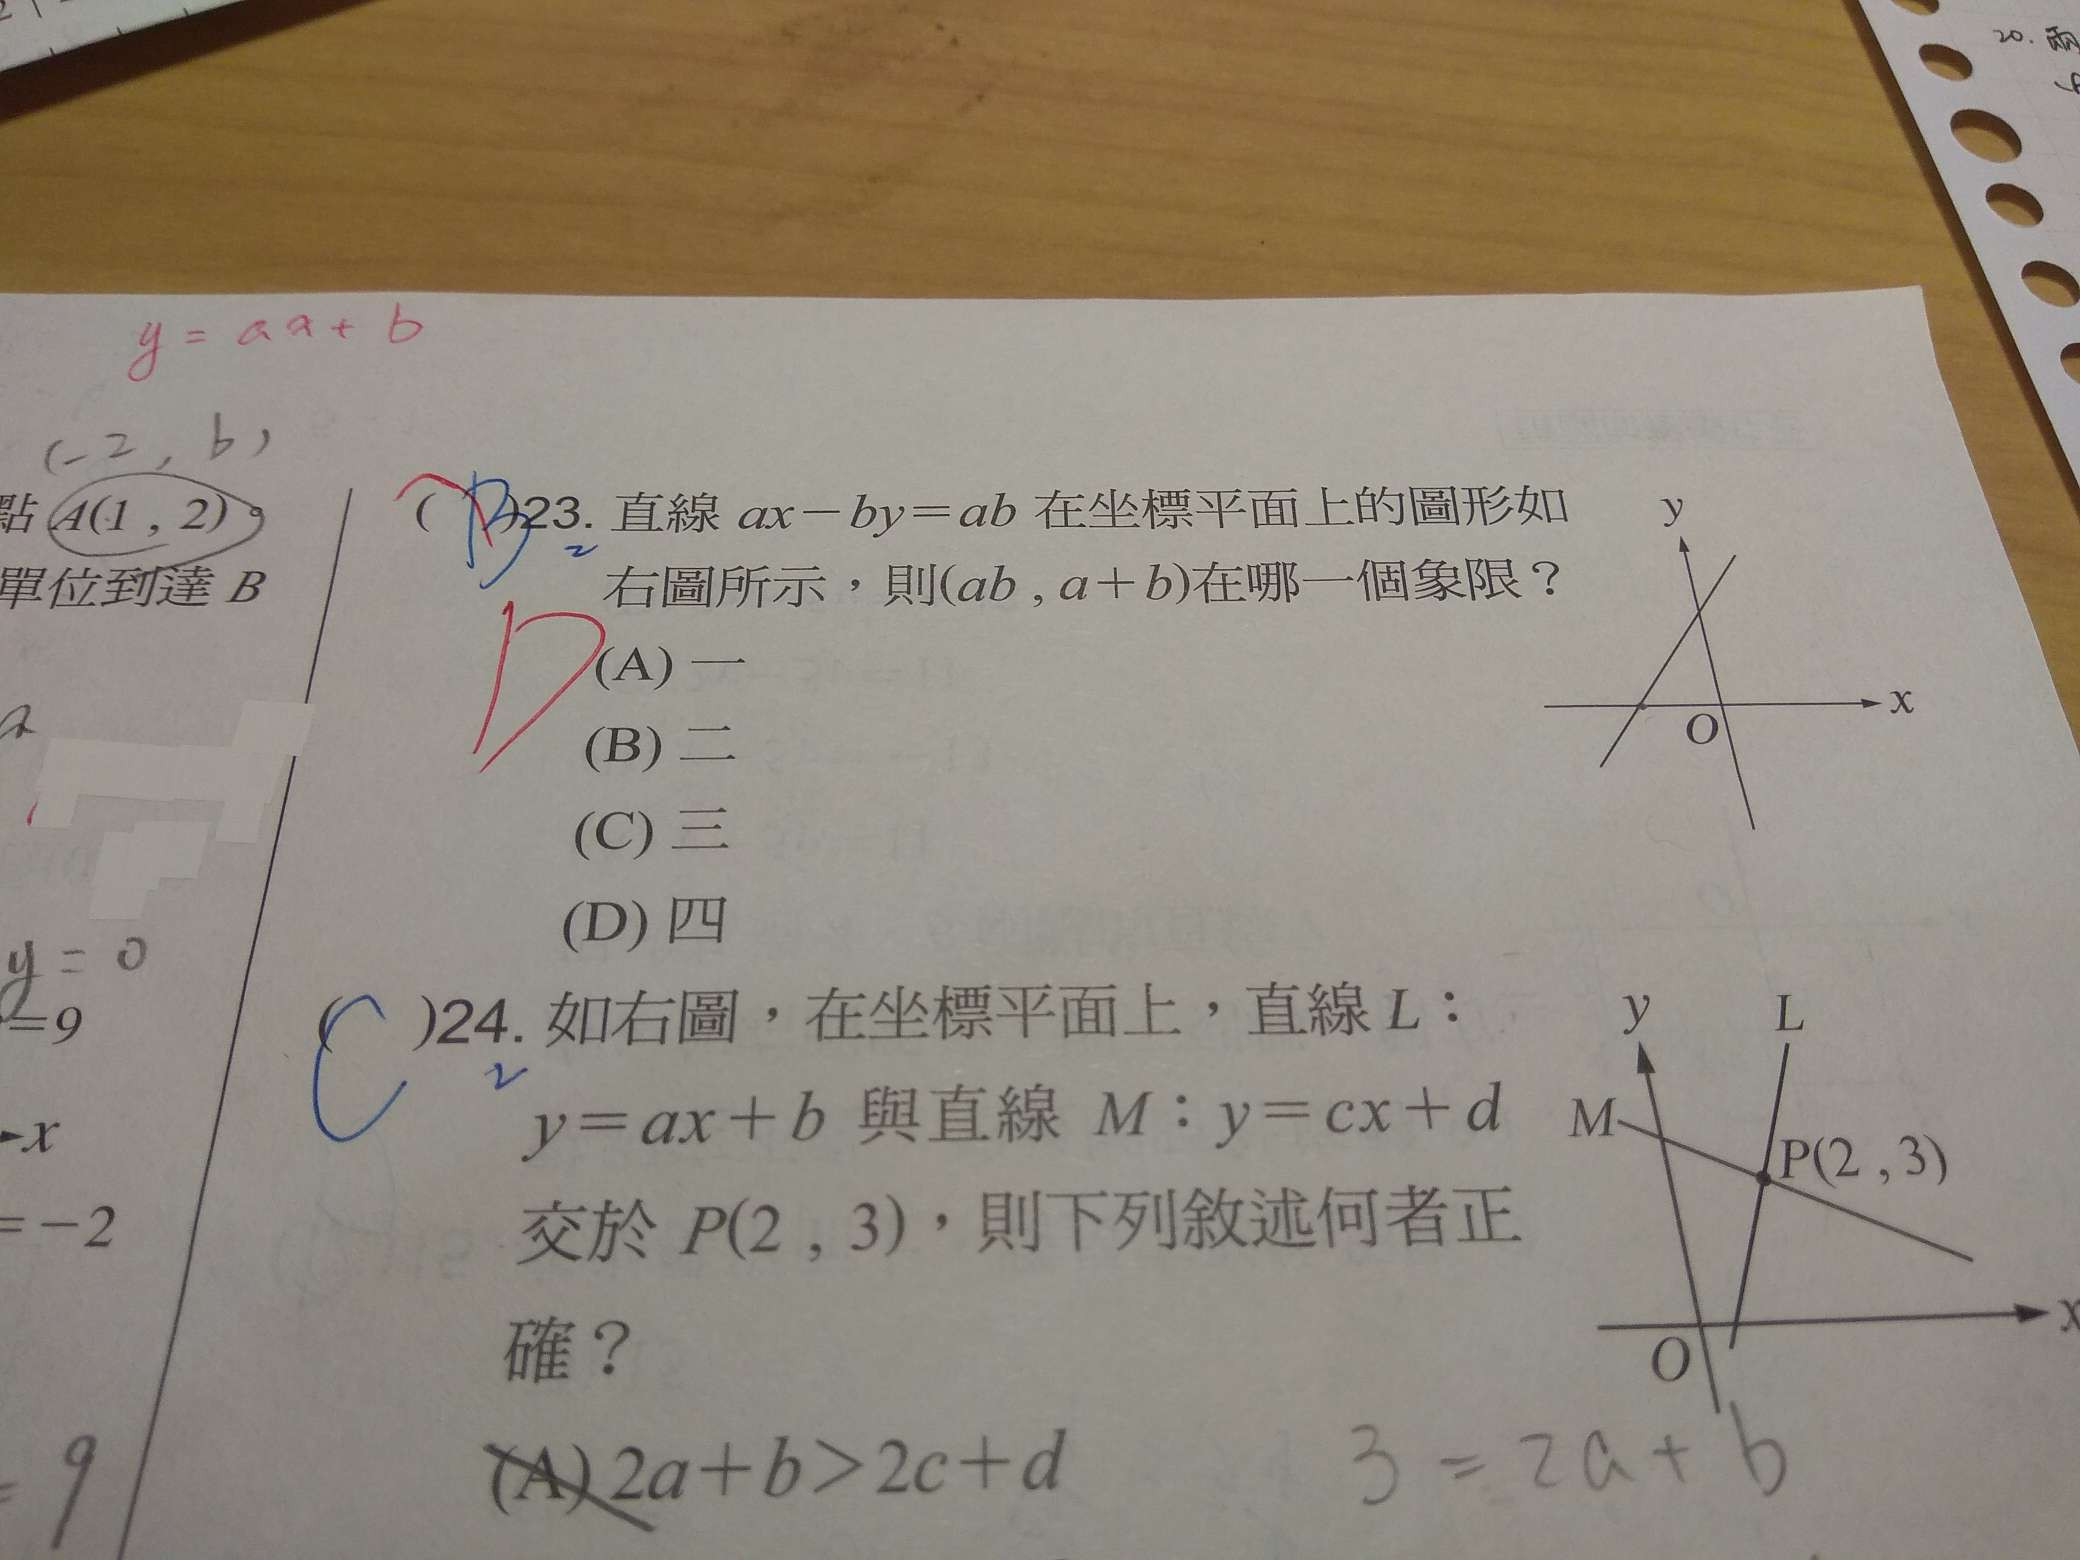 20. 兩
y = ax + b
(-2, b)
點 A(1 , 2)。
單位到達 B
y = 0
=9
x
=-2
= 9
( B )23. 直線 ax－by＝ab 在坐標平面上的圖形如
2
右圖所示，則(ab , a＋b)在哪一個象限？
D
(A) 一
(B) 二
(C) 三
(D) 四
y
x
O
( C )24. 如右圖，在坐標平面上，直線 L：
2
y＝ax＋b 與直線 M：y＝cx＋d
交於 P(2 , 3)，則下列敘述何者正
確？
(A) 2a＋b＞2c＋d
y
L
M
P(2 , 3)
O
x
3 = 2a + b